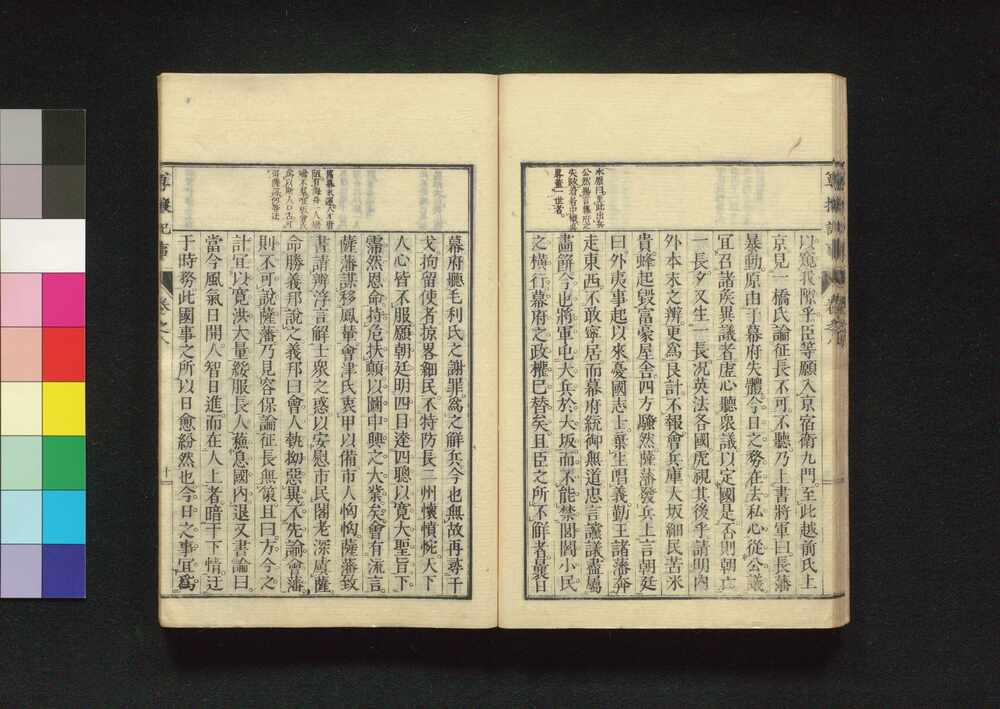 以窺我隙乎臣等願入京宿衛九門至此越前氏上
京見一橋氏論征長不可不聽乃上書將軍曰長藩
暴動原由于幕府失體今日之務在去私心從公議
宜召諸矦異議者虛心聽衆議以定國是否則朝亡
一長夕又生一長況英法各國虎視其後乎請明內
外本末之辨更爲良計不報會兵庫大坂細民苦米
貴蜂起毀富豪屋舍四方騷然薩藩發兵上言朝廷
曰外夷事起以來憂國志士叢生唱義勤王諸藩奔
走東西不敢寧居而幕府統御無道忠言讜議盡屬
畵餅今也將軍屯大兵於大坂而不能禁閭閻小民
之橫行幕府之政權已替矣且臣之所不觧者曩日
幕府聽毛利氏之謝罪爲之觧兵今也無故再尋干
戈拘留使者掠畧細民不特防長二州懷憤惋天下
人心皆不服願朝廷明四目達四聰以寬大聖旨下
霈然恩命持危扶顚以圖中興之大業矣會有流言
薩藩謀移鳳輦會津氏衷甲以備市人恟恟薩藩致
書請辨浮言解士衆之惑以安慰市民閣老深虞薩
命勝義邦說之義邦曰會人執拗惡異不先諭會藩
則不可說薩藩乃見容保論征長無策且曰方今之
計宜以寬洪大量綏服長人蘓息國內退又書論曰
當今風氣日開人智日進而在人上者暗于下情迂
于時務此國事之所以日愈紛然也今日之事宜爲
尊攘紀事
卷之八
十